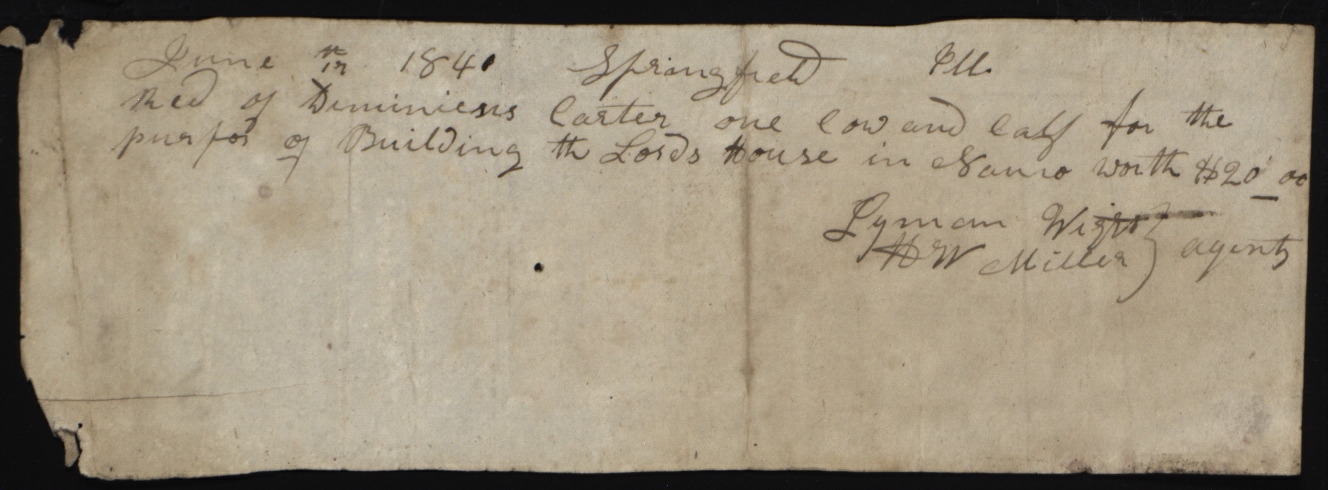 June 1841 Springfield Ill.
Recd of Diminicus Carter one Cow and Calf for the
purpos of Building th Lords House in Nauvo worth $20 00
Lyman Wight
H W Miller } agents